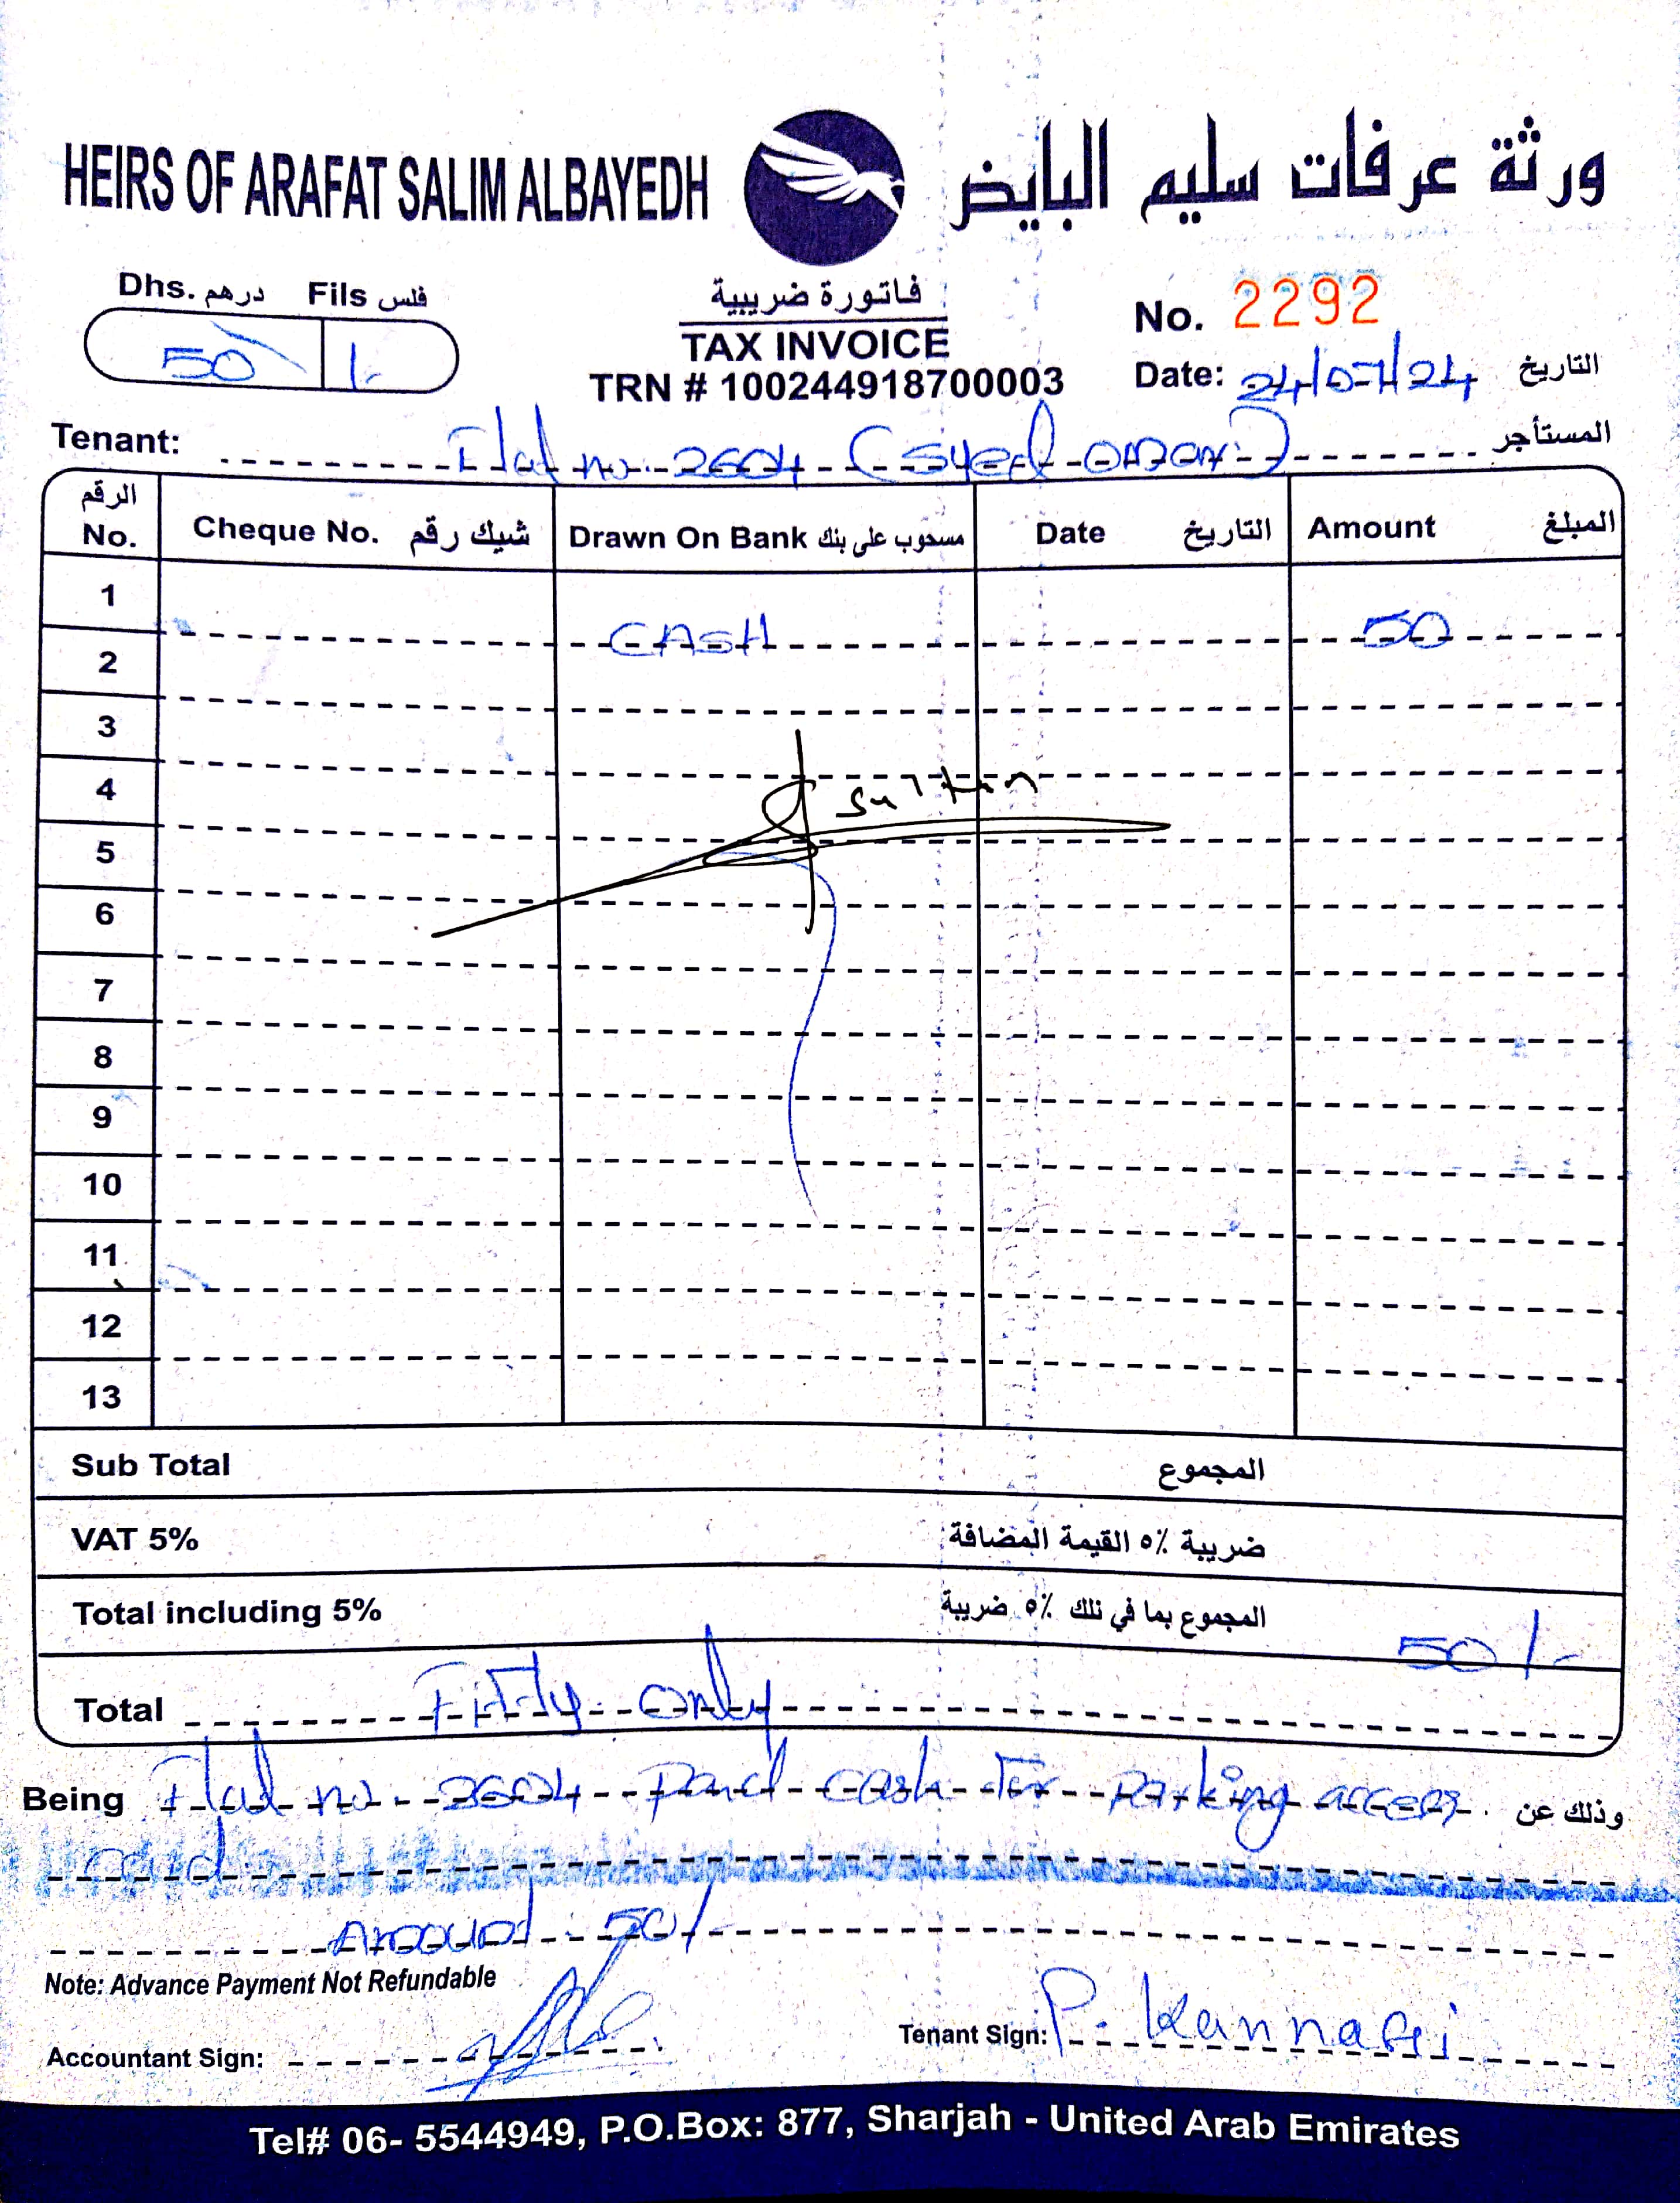 HEIRS OF ARAFAT SALIM ALBAYEDH ورثة عرفات سليم البايض
Dhs. درهم Fils فلس
50 /-
فاتورة ضريبية
TAX INVOICE
TRN # 100244918700003
No. 2292
Date: 24/07/24 التاريخ
Tenant: Flat no. 2604 (Syed Oman) المستأجر
الرقم No. Cheque No. شيك رقم Drawn On Bank مسحوب على بنك Date التاريخ Amount المبلغ
1 CASH 50
2
3
4 Sultan
5
6
7
8
9
10
11
12
13
Sub Total المجموع
VAT 5% ضريبة ٥٪ القيمة المضافة
Total including 5% المجموع بما في ذلك ٥٪ ضريبة 50/-
Total Fifty Only
Being Flat no. 2604 Paid cash for Parking access وذلك عن
card
Amount 50/-
Note: Advance Payment Not Refundable
Accountant Sign: Tenant Sign: P. Kannagi
Tel# 06- 5544949, P.O.Box: 877, Sharjah - United Arab Emirates